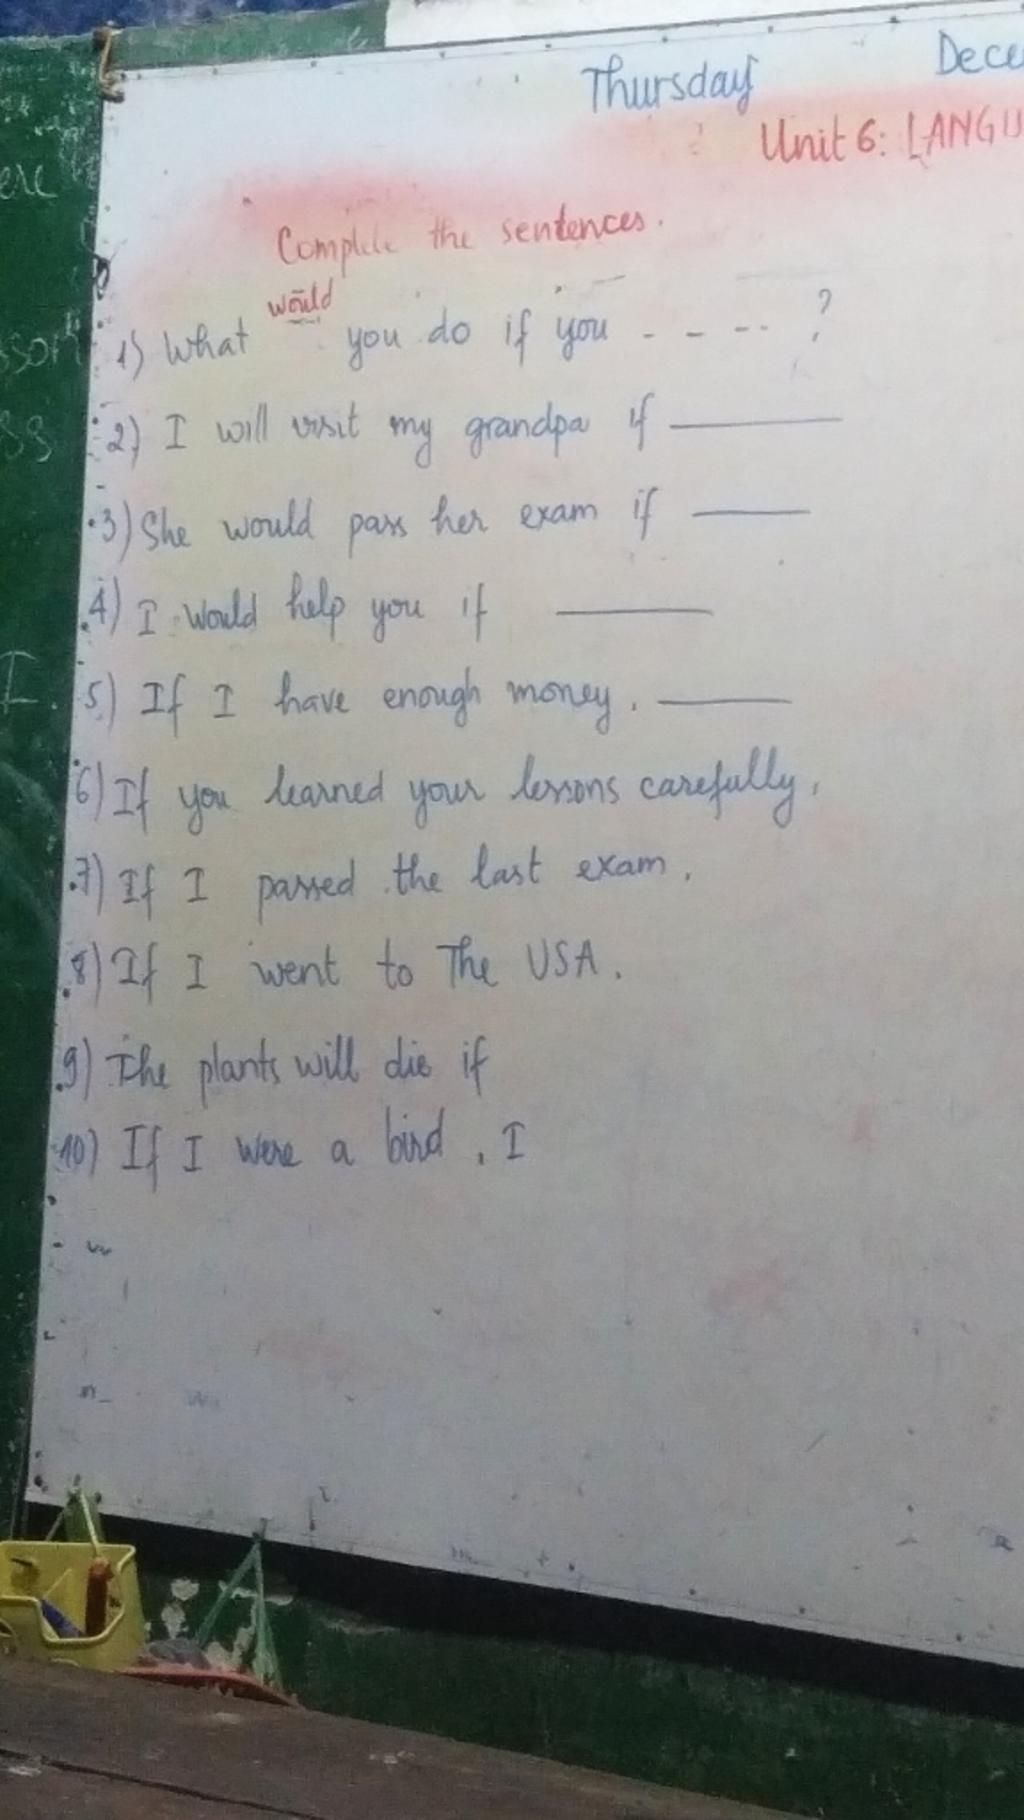 Thursday
Unit 6:
Complete the sentences.
would
1) What you do if you - - - - ?
2) I will visit my grandpa if ______
3) She would pass her exam if ______
4) I would help you if ______
5) If I have enough money, ______
6) If you learned your lessons carefully,
7) If I passed the last exam,
8) If I went to The USA,
9) The plants will die if
10) If I were a bird, I